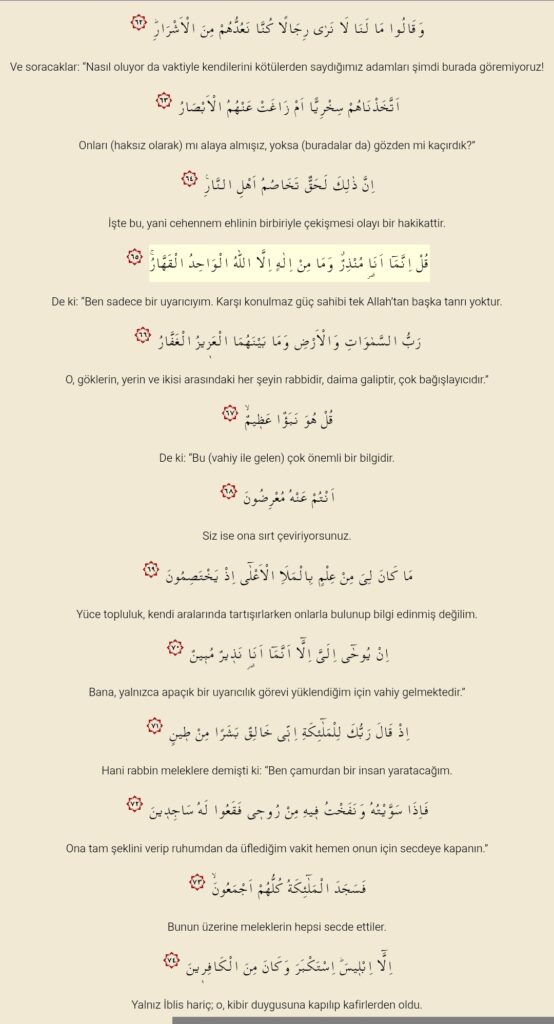 وَقَالُوا مَا لَنَا لَا نَرٰى رِجَالًا كُنَّا نَعُدُّهُمْ مِنَ الْاَشْرَارِۜ ٦٢
Ve soracaklar: “Nasıl oluyor da vaktiyle kendilerini kötülerden saydığımız adamları şimdi burada göremiyoruz!
اَتَّخَذْنَاهُمْ سِخْرِيًّا اَمْ زَاغَتْ عَنْهُمُ الْاَبْصَارُ ٦٣
Onları (haksız olarak) mı alaya almışız, yoksa (buradalar da) gözden mi kaçırdık?”
اِنَّ ذٰلِكَ لَحَقٌّ تَخَاصُمُ اَهْلِ النَّارِ۟ ٦٤
İşte bu, yani cehennem ehlinin birbiriyle çekişmesi olayı bir hakikattir.
قُلْ اِنَّمَٓا اَنَا۬ مُنْذِرٌۗ وَمَا مِنْ اِلٰهٍ اِلَّا اللّٰهُ الْوَاحِدُ الْقَهَّارُۚ ٦٥
De ki: “Ben sadece bir uyarıcıyım. Karşı konulmaz güç sahibi tek Allah’tan başka tanrı yoktur.
رَبُّ السَّمٰوَاتِ وَالْاَرْضِ وَمَا بَيْنَهُمَا الْعَز۪يزُ الْغَفَّارُ ٦٦
O, göklerin, yerin ve ikisi arasındaki her şeyin rabbidir, daima galiptir, çok bağışlayıcıdır.”
قُلْ هُوَ نَبَؤٌا عَظ۪يمٌۙ ٦٧
De ki: “Bu (vahiy ile gelen) çok önemli bir bilgidir.
اَنْتُمْ عَنْهُ مُعْرِضُونَ ٦٨
Siz ise ona sırt çeviriyorsunuz.
مَا كَانَ لِيَ مِنْ عِلْمٍ بِالْمَلَأِ الْاَعْلٰٓى اِذْ يَخْتَصِمُونَ ٦٩
Yüce topluluk, kendi aralarında tartışırlarken onlarla bulunup bilgi edinmiş değilim.
اِنْ يُوحٰٓى اِلَيَّ اِلَّٓا اَنَّمَٓا اَنَا۬ نَذ۪يرٌ مُب۪ينٌ ٧٠
Bana, yalnızca apaçık bir uyarıcılık görevi yüklendiğim için vahiy gelmektedir.”
اِذْ قَالَ رَبُّكَ لِلْمَلٰٓئِكَةِ اِنّ۪ي خَالِقٌ بَشَرًا مِنْ ط۪ينٍ ٧١
Hani rabbin meleklere demişti ki: “Ben çamurdan bir insan yaratacağım.
فَاِذَا سَوَّيْتُهُ وَنَفَخْتُ ف۪يهِ مِنْ رُوح۪ي فَقَعُوا لَهُ سَاجِد۪ينَ ٧٢
Ona tam şeklini verip ruhumdan da üflediğim vakit hemen onun için secdeye kapanın.”
فَسَجَدَ الْمَلٰٓئِكَةُ كُلُّهُمْ اَجْمَعُونَۙ ٧٣
Bunun üzerine meleklerin hepsi secde ettiler.
اِلَّٓا اِبْل۪يسَۜ اِسْتَكْبَرَ وَكَانَ مِنَ الْكَافِر۪ينَ ٧٤
Yalnız İblis hariç; o, kibir duygusuna kapılıp kafirlerden oldu.